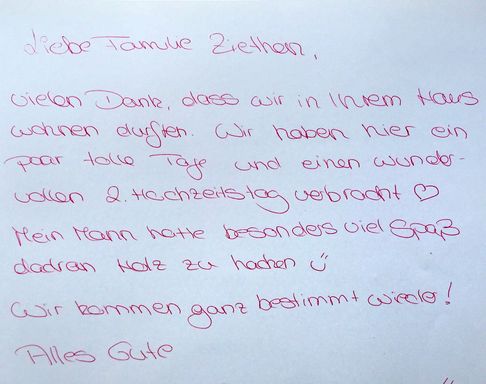 Liebe Familie Ziethen,
vielen Dank, dass wir in Ihrem Haus
wohnen durften. Wir haben hier ein
paar tolle Tage und einen wunder-
vollen 2. Hochzeitstag verbracht ♡
Mein Mann hatte besonders viel Spaß
dadran Holz zu hacken ü
Wir kommen ganz bestimmt wieder!
Alles Gute